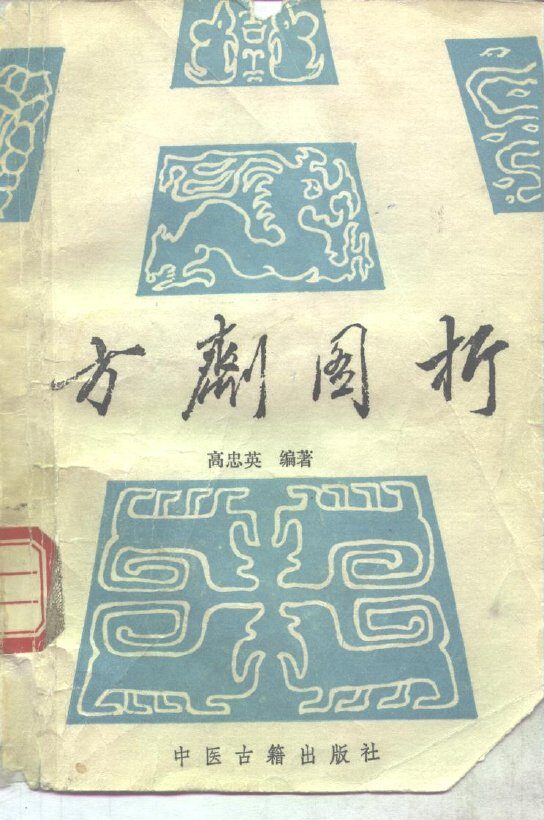 方劑图析
高忠英 编著
中医古籍出版社